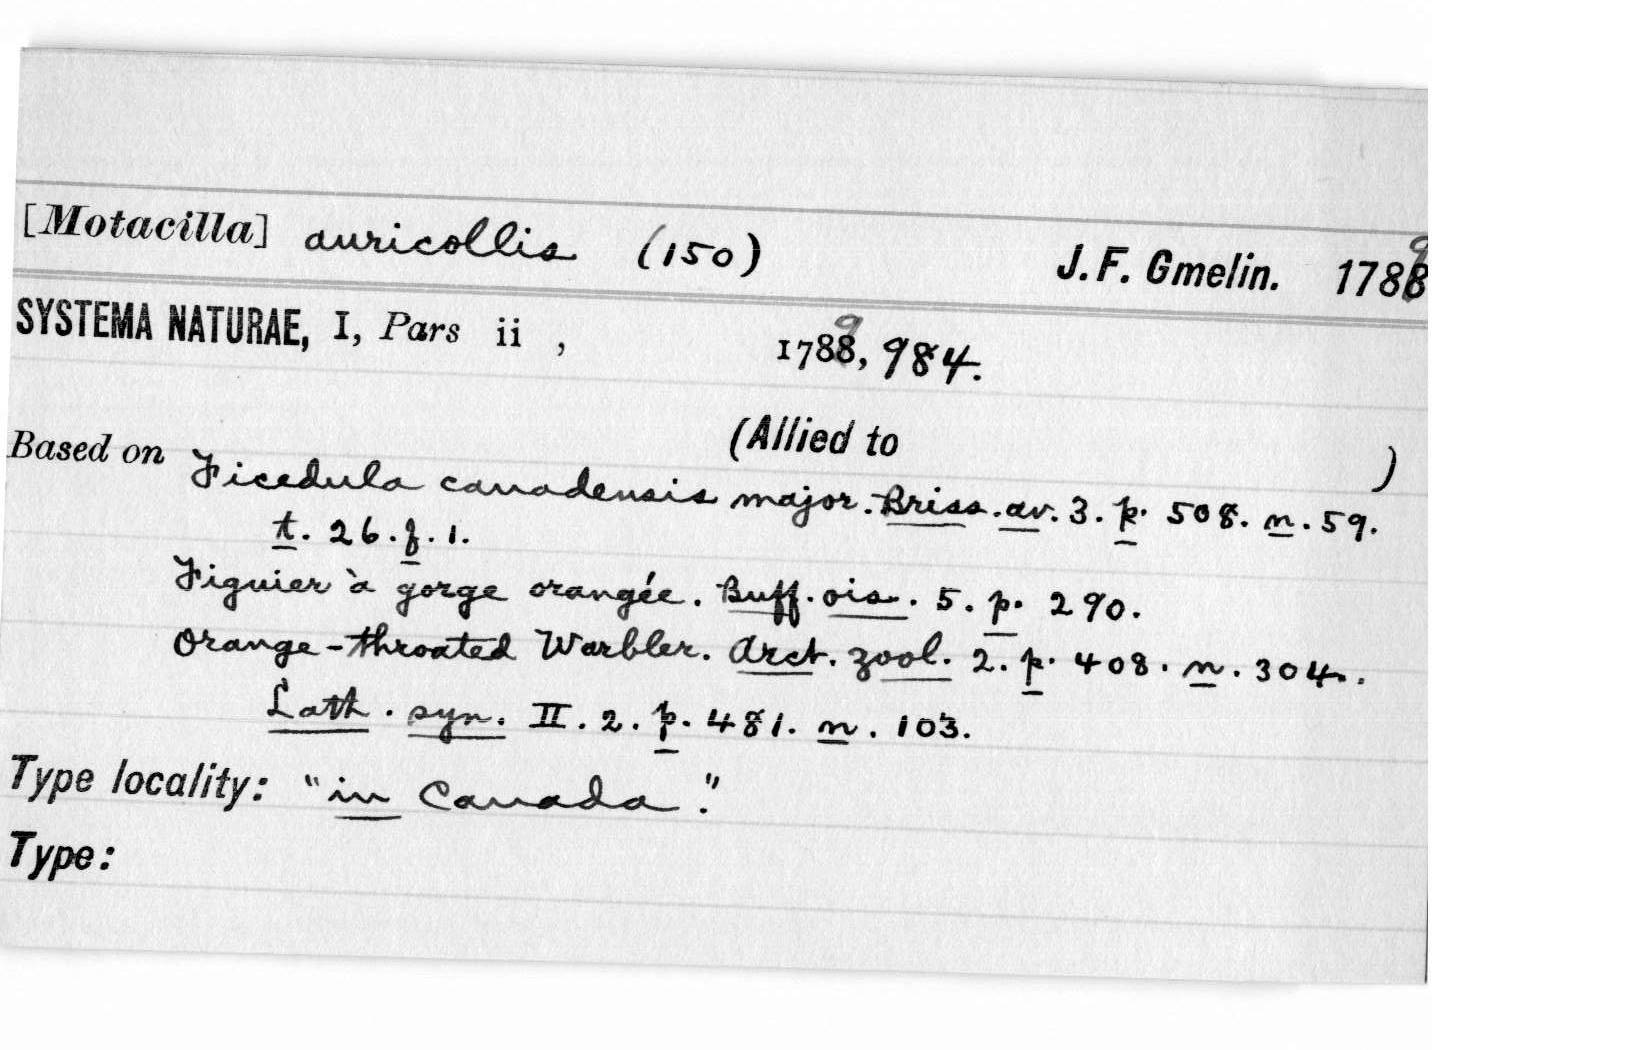 [Motacilla] auricollis (150) J. F. Gmelin. 1789
SYSTEMA NATURAE, I, Pars ii , 1789, 984.
(Allied to )
Based on Ficedula canadensis major. Briss. av. 3. p. 508. n. 59.
t. 26. f. 1.
Figuier à gorge orangée. Buff. ois. 5. p. 290.
Orange-throated Warbler. Arct. zool. 2. p. 408. n. 304.
Lath. syn. II. 2. p. 481. n. 103.
Type locality: "in Canada."
Type: